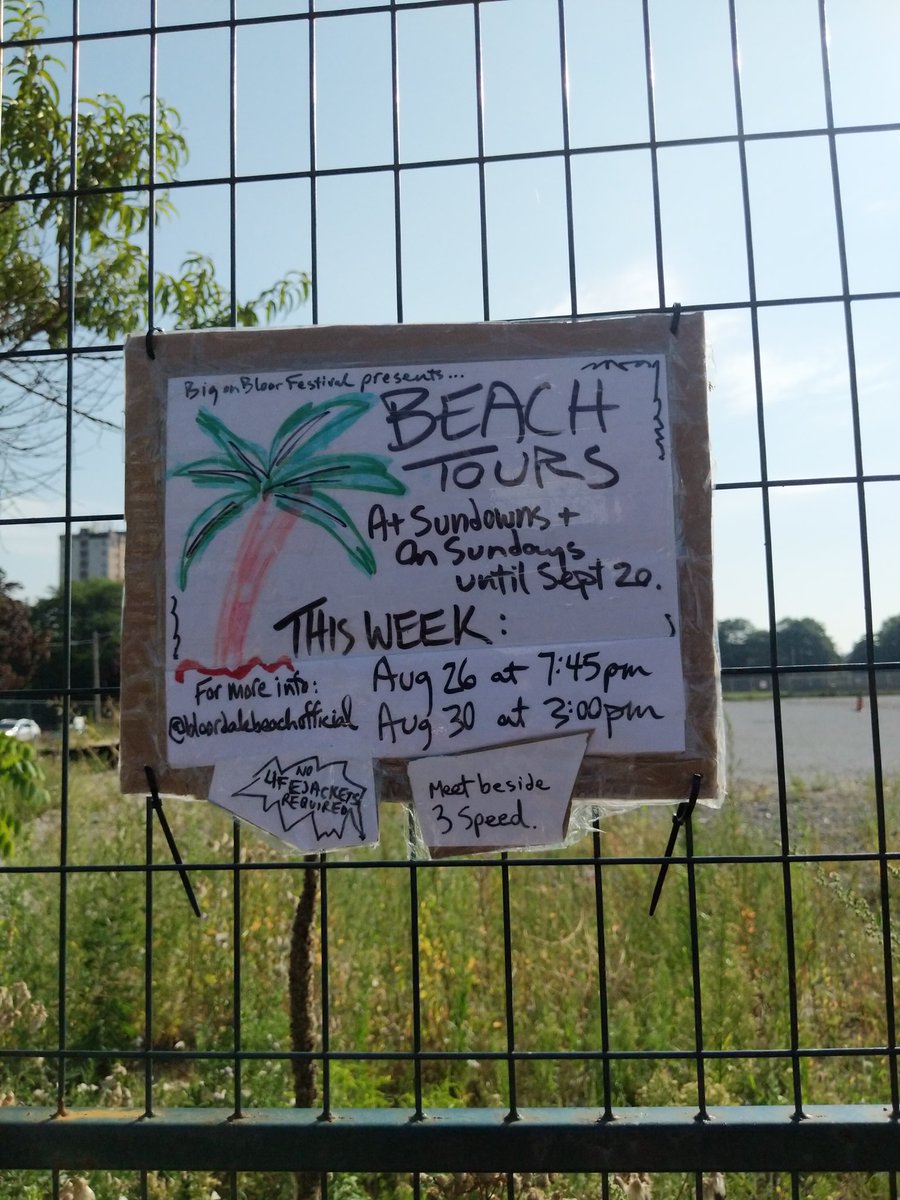 Big on Bloor Festival presents...
BEACH
TOURS
At Sundowns +
On Sundays
until Sept 20.
THIS WEEK:
Aug 26 at 7:45pm
Aug 30 at 3:00pm
For more info:
@bloordalebeachofficial
NO
4FEJACKETS
REQUIRED
Meet beside
3 Speed.